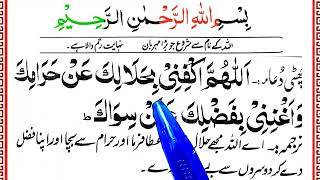 بِسْمِ اللهِ الرَّحْمٰنِ الرَّحِيْمِ
اللہ کے نام سے شروع جو بڑا مہربان نہایت رحم والا ہے۔
چھٹی دُعا: اَللّٰهُمَّ اكْفِنِيْ بِحَلَالِكَ عَنْ حَرَامِكَ
وَاَغْنِنِيْ بِفَضْلِكَ سِوَاكَ ط
ترجمہ: اے اللہ مجھے حلال عطا فرما اور حرام سے بچا اور اپنا فضل
دے کر دوسروں سے بے